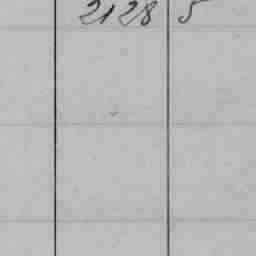 2128 5